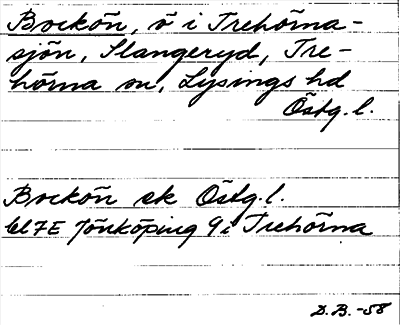 Bockön, ö i Trehörna-
sjön, Slangeryd, Tre-
hörna sn, Lysings hd
Östg. l.
Bockön ek Östg. l.
7E Jönköping 9i Trehörna
D.B. -58